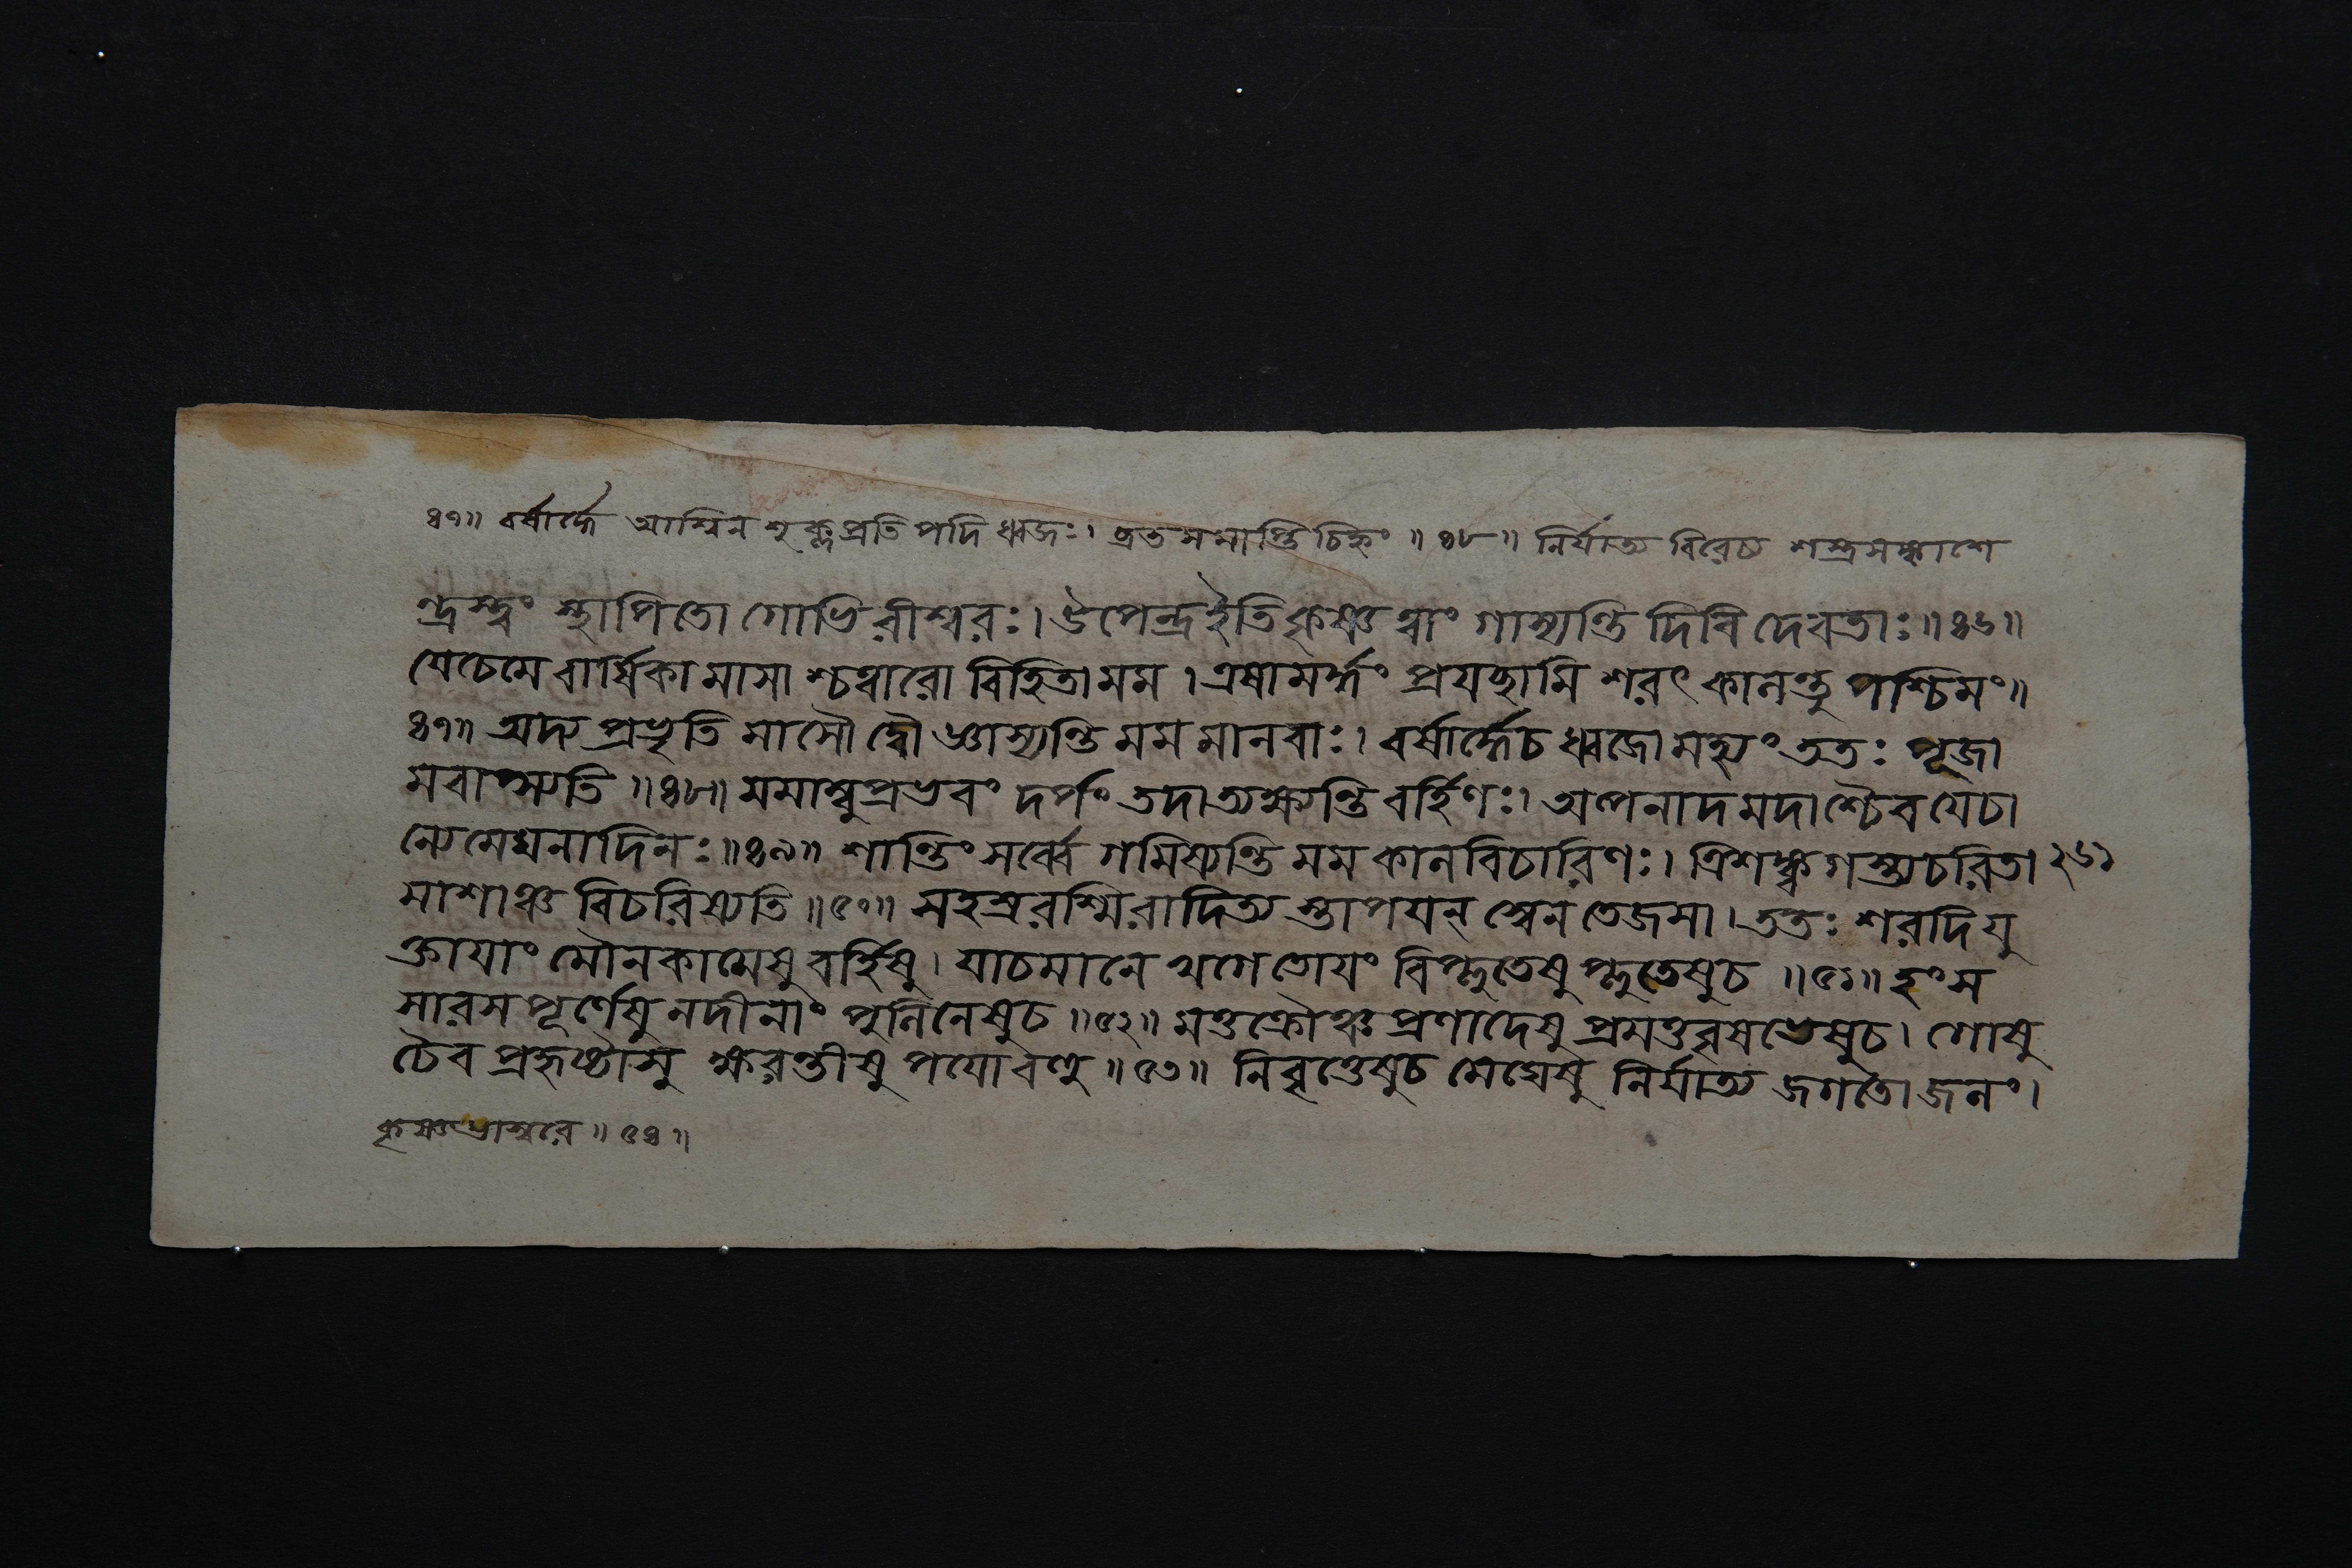 ৪৭॥ বর্ষার্দ্ধে আশ্বিন শুক্লপ্রতিপদি ধ্বজঃ। ব্রতমমাস্তি চিহ্নং ॥ ৪৮॥ নির্যাত্য বিরেচ্য শস্ত্রসঙ্কাশে
ন্দ্রস্ত্বং স্থাপিতো গোভিরীশ্বরঃ। উপেন্দ্র ইতি কৃষ্ণ ত্বাং গাস্যন্তি দিবি দেবতাঃ॥ ৪৬॥
যে চেমে বার্ষিকা মাসাশ্চত্বারো বিহিতা মম । এষামর্দ্ধং প্রযচ্ছামি শরৎ কালন্তু পশ্চিমং॥
৪৭॥ অদ্য প্রভৃতি মাসৌ দ্বৌ জ্ঞাস্যন্তি মম মানবাঃ। বর্ষার্দ্ধে চ ধ্বজো মহ্যং ততঃ পূজা
মবাপ্স্যতি ॥ ৪৮॥ মমাম্বুপ্রভবং দর্পং তদা ত্যক্ষ্যন্তি বর্হিণঃ। অল্পনাদমদাশ্চৈব যে চা
ন্যে মেঘনাদিনঃ॥ ৪৯॥ শান্তিং সর্ব্বে গমিষ্যন্তি মম কালবিচারিণঃ। ত্রিশঙ্ক্বগস্ত্যচরিতা ২৬১
মাশাঞ্চ বিচরিষ্যতি ॥ ৫০॥ সহস্ররশ্মিরাদিত্যস্তাপযন্ স্বেন তেজসা। ততঃ শরদি যু
ক্তাযাং মৌনকামেষু বর্হিষু। যাচমানে খগে তোযং বিপ্লুতেষু প্লুতেষু চ ॥ ৫১॥ হংস
সারস পূর্ণেষু নদীনাং পুলিনেষু চ ॥ ৫২॥ মত্তক্রৌঞ্চ প্রণাদেষু প্রমত্তবৃষভেষু চ। গোষু
চৈব প্রহৃষ্টাসু ক্ষরন্তীষু পযো বহু ॥ ৫৩॥ নিবৃত্তেষু চ মেঘেষু নির্যাত্য জগতো জলং।
কৃষ্ণ প্রাম্বরে ॥ ৫৪॥